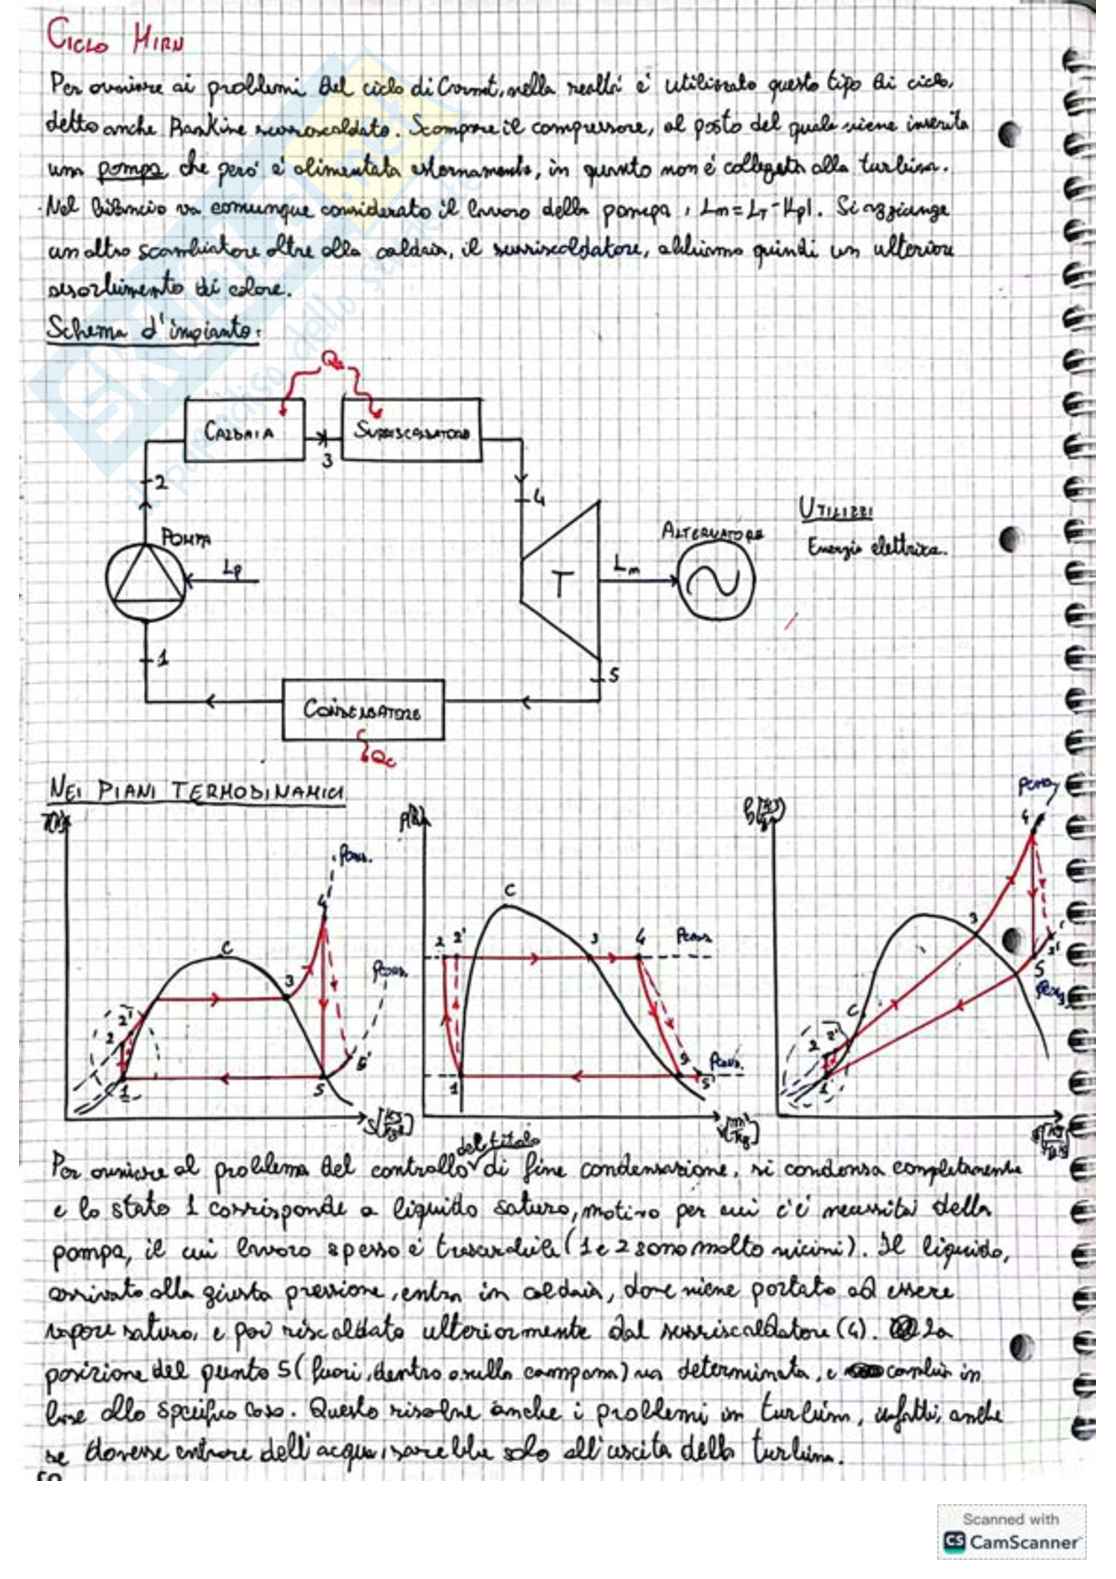 CICLO HIRN
Per ovviare ai problemi del ciclo di Carnot, nella realtà è utilizzato questo tipo di ciclo,
detto anche Rankine surriscaldato. Scompare il compressore, al posto del quale viene inserita
una pompa, che però è alimentata esternamente, in quanto non è collegata alla turbina.
Nel bilancio va comunque considerato il lavoro della pompa, Lm = LT - |Lp|. Si aggiunge
un altro scambiatore oltre alla caldaia, il surriscaldatore, abbiamo quindi un ulteriore
assorbimento di calore.
Schema d'impianto:
CALDAIA
SURRISCALDATORE
3
2
4
POMPA
Lp
T
Lm
ALTERNATORE
UTILIZZI
Energia elettrica.
1
5
CONDENSATORE
Qc
NEI PIANI TERMODINAMICI
C
3
4
2
2'
1
5
5'
C
2
2'
3
4
1
5
5'
C
3
4
2
2'
1
5
5'
Per ovviare al problema del controllo del titolo di fine condensazione, si condensa completamente
e lo stato 1 corrisponde a liquido saturo, motivo per cui c'è necessità della
pompa, il cui lavoro spesso è trascurabile (1 e 2 sono molto vicini). Il liquido,
arrivato alla giusta pressione, entra in caldaia, dove viene portato ad essere
vapore saturo, e poi riscaldato ulteriormente dal surriscaldatore (4). La
posizione del punto 5 (fuori, dentro o sulla campana) va determinata, e cambia in
base allo specifico caso. Questo risolve anche i problemi in turbina, infatti, anche
se dovesse entrare dell'acqua, sarebbe solo all'uscita della turbina.
Scanned with
CS CamScanner